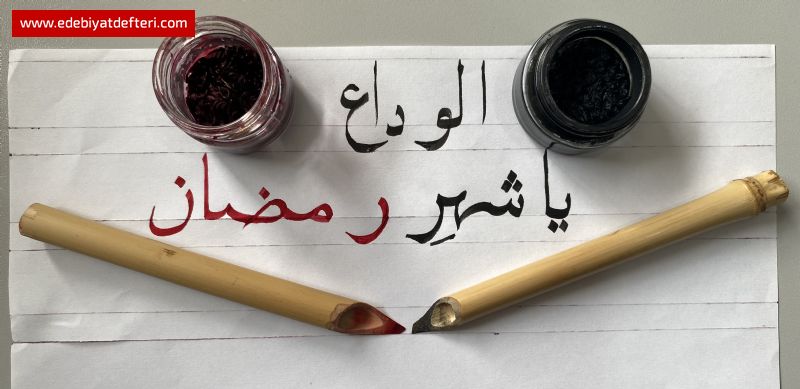 www.edebiyatdefteri.com
الوداع
يا شهرِ رمضان